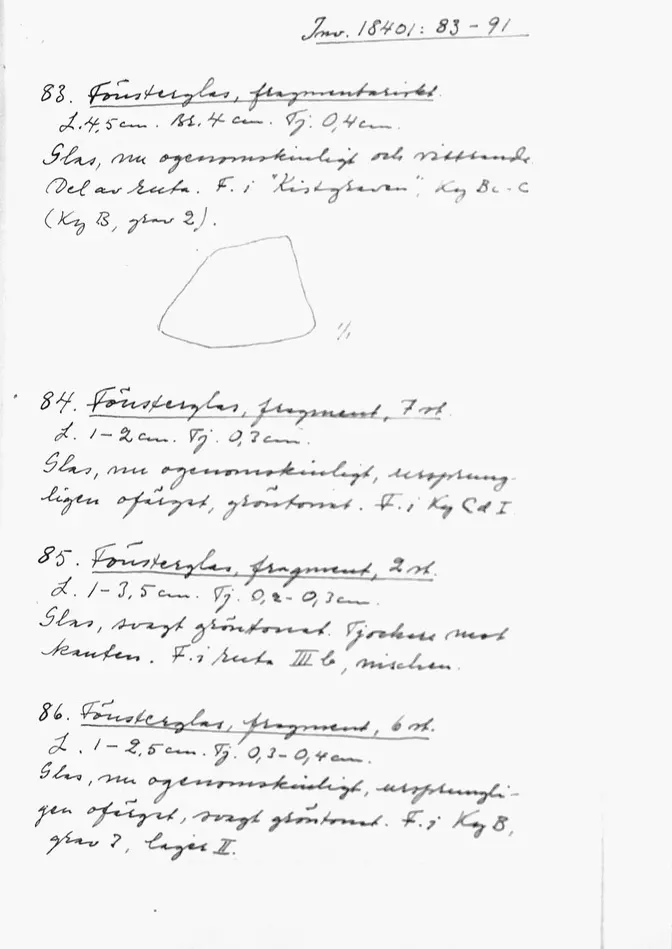 Inv. 18401: 83 - 91
83. Fönsterglas, fragmentariskt.
L. 4,5 cm. Br. 4 cm. Tj. 0,4 cm.
Glas, nu ogenomskinligt och vittrande
Del av ruta. F. i "Kistgraven", Ky Bc-C
(Ky B, grav 2).
1/1
84. Fönsterglas, fragment, 7 st.
L. 1-2 cm. Tj. 0,3 cm.
Glas, nu ogenomskinligt, ursprung-
ligen ofärgat, gröntonat. F. i Ky Cd I
85. Fönsterglas, fragment, 2 st.
L. 1-3,5 cm. Tj. 0,2-0,3 cm.
Glas, svagt gröntonat. Tjockare mot
kanten. F. i ruta III b, nischen.
86. Fönsterglas, fragment, 6 st.
L. 1-2,5 cm. Tj. 0,3-0,4 cm.
Glas, nu ogenomskinligt, ursprungli-
gen ofärgat, svagt gröntonat. F. i Ky B,
grav 3, lager II.